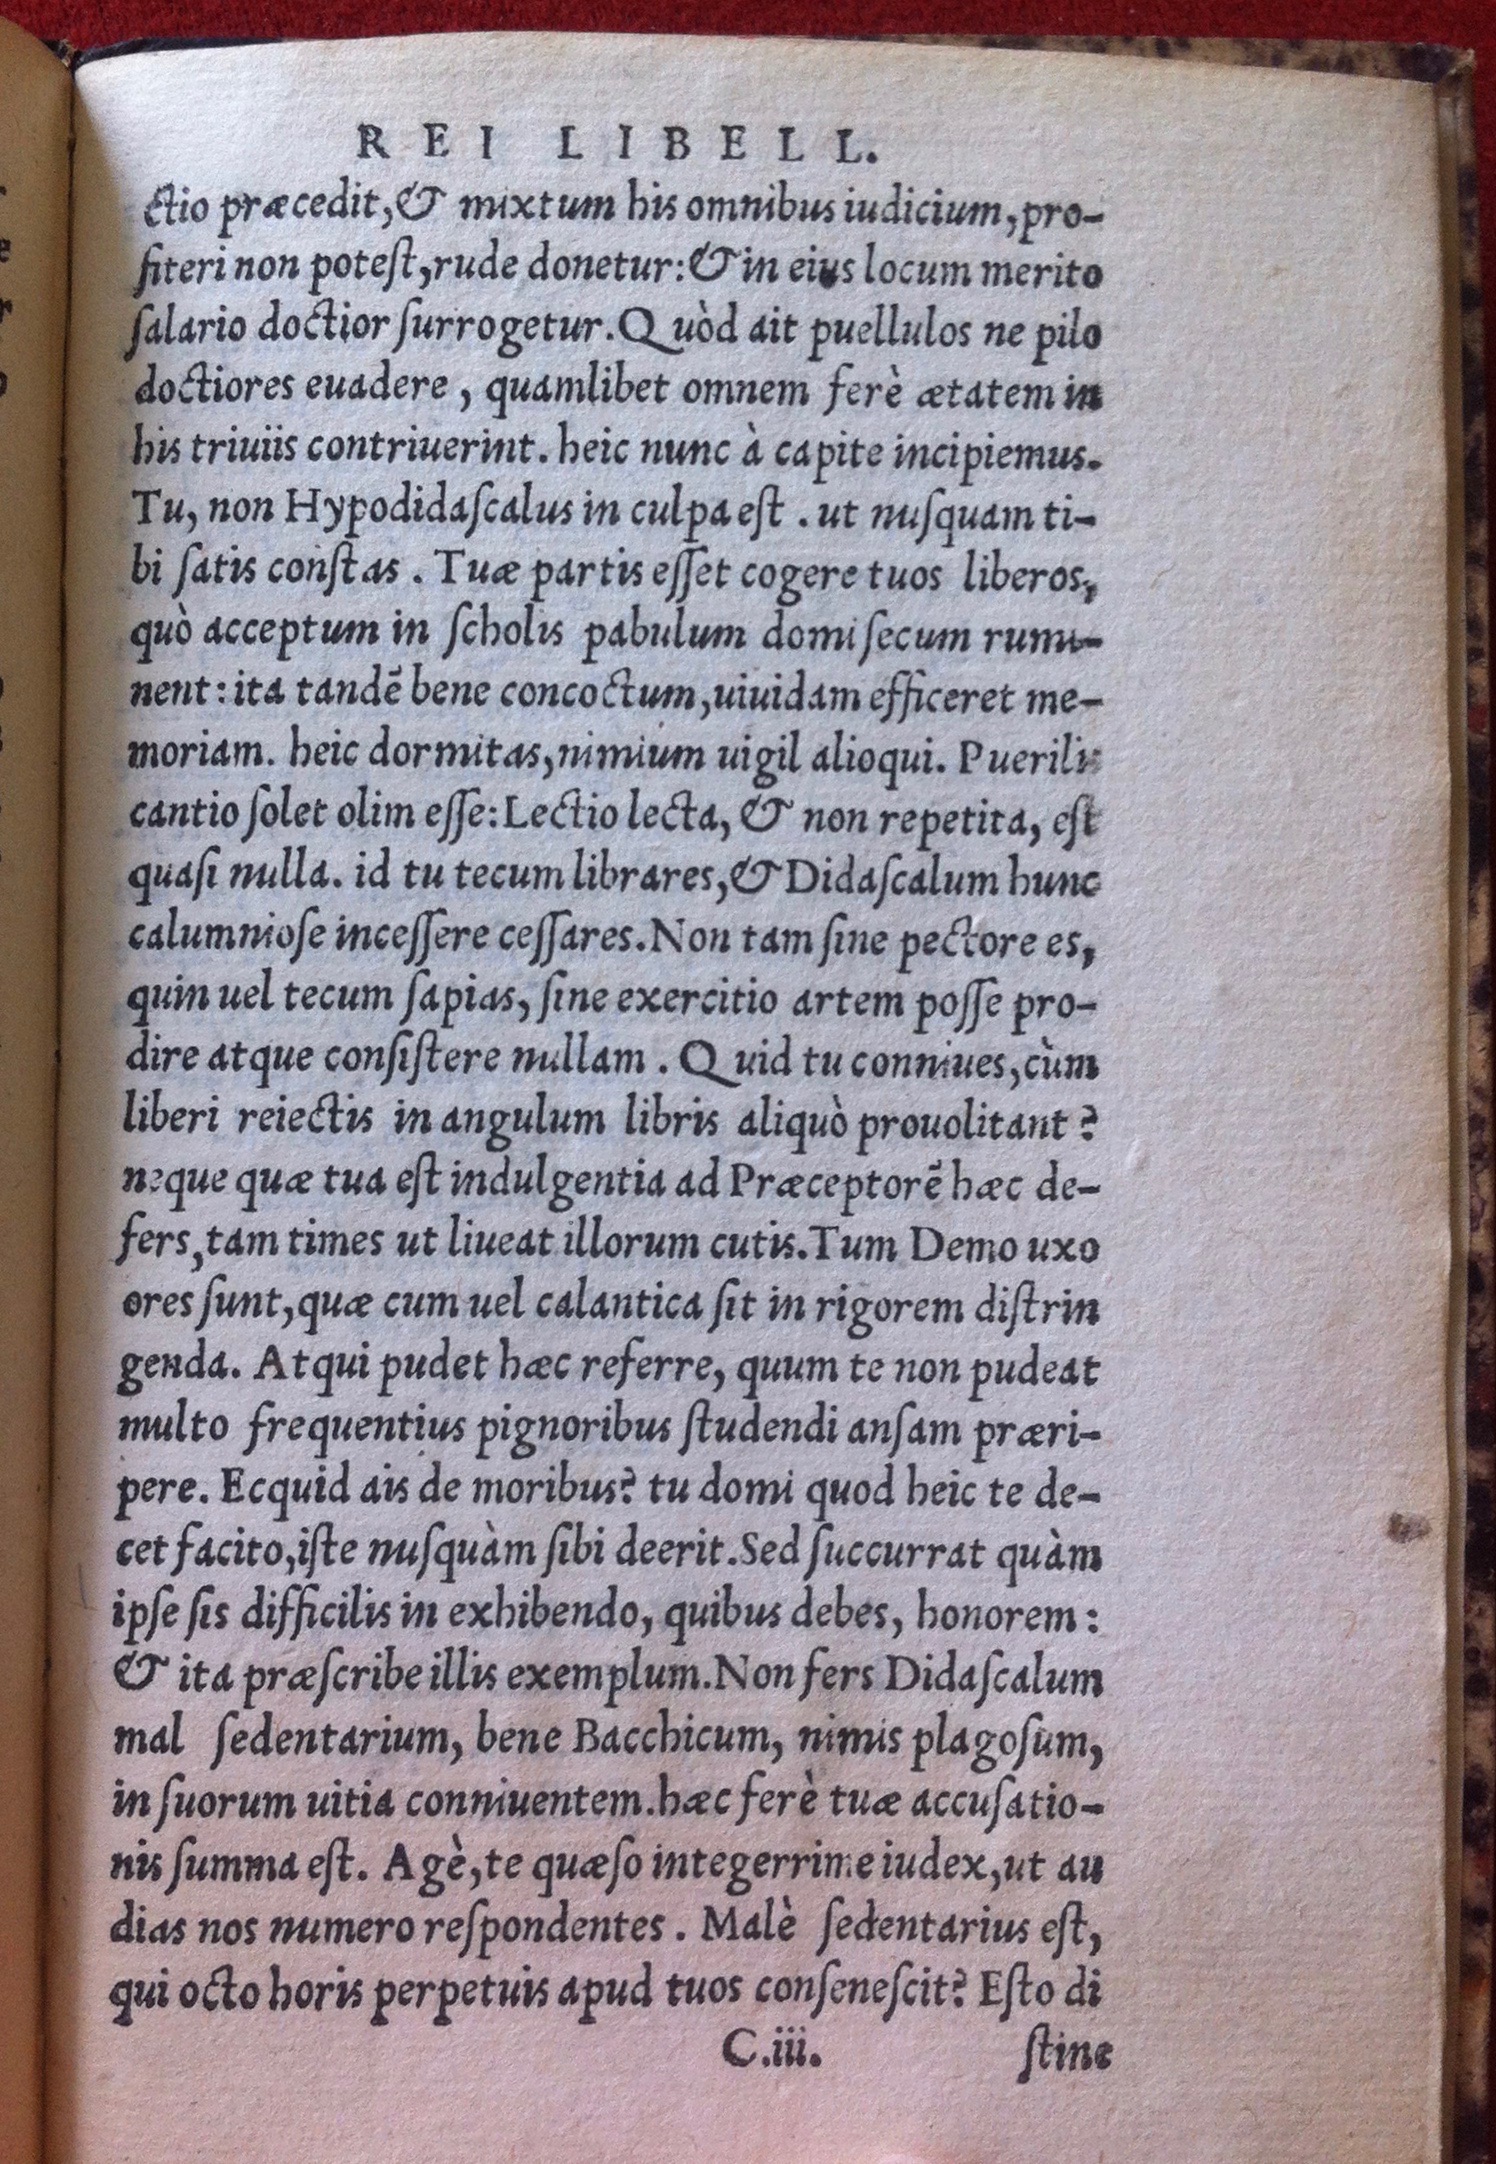 REI LIBELL.
ctio præcedit, & mixtum his omnibus iudicium, pro-
fiteri non poteſt, rude donetur: & in eius locum merito
ſalario doctior ſurrogetur. Quòd ait puellulos ne pilo
doctiores euadere, quamlibet omnem ferè ætatem in
his triuiis contriuerint. heic nunc à capite incipiemus.
Tu, non Hypodidaſcalus in culpa eſt. ut nuſquam ti-
bi ſatis conſtas. Tuæ partis eſſet cogere tuos liberos,
quò acceptum in ſcholis pabulum domi ſecum rumi-
nent: ita tandē bene concoctum, uiuidam efficeret me-
moriam. heic dormitas, nimium uigil alioqui. Puerilis
cantio ſolet olim eſſe: Lectio lecta, & non repetita, eſt
quaſi nulla. id tu tecum librares, & Didaſcalum hunc
calumnioſe inceſſere ceſſares. Non tam ſine pectore es,
quin uel tecum ſapias, ſine exercitio artem poſſe pro-
dire atque conſiſtere nullam. Quid tu conniues, cùm
liberi reiectis in angulum libris aliquò prouolitant?
neque quæ tua eſt indulgentia ad Præceptorē hæc de-
fers, tam times ut liueat illorum cutis. Tum Demo uxo
ores ſunt, quæ cum uel calantica ſit in rigorem diſtrin
genda. Atqui pudet hæc referre, quum te non pudeat
multo frequentius pignoribus ſtudendi anſam præri-
pere. Ecquid ais de moribus? tu domi quod heic te de-
cet facito, iſte nuſquàm ſibi deerit. Sed ſuccurrat quàm
ipſe ſis difficilis in exhibendo, quibus debes, honorem:
& ita præſcribe illis exemplum. Non fers Didaſcalum
mal ſedentarium, bene Bacchicum, nimis plagoſum,
in ſuorum uitia conniuentem. hæc ferè tuæ accuſatio-
nis ſumma eſt. Agè, te quæſo integerrime iudex, ut au
dias nos numero reſpondentes. Malè ſedentarius eſt,
qui octo horis perpetuis apud tuos conſeneſcit? Eſto di
C.iii. ſtinc